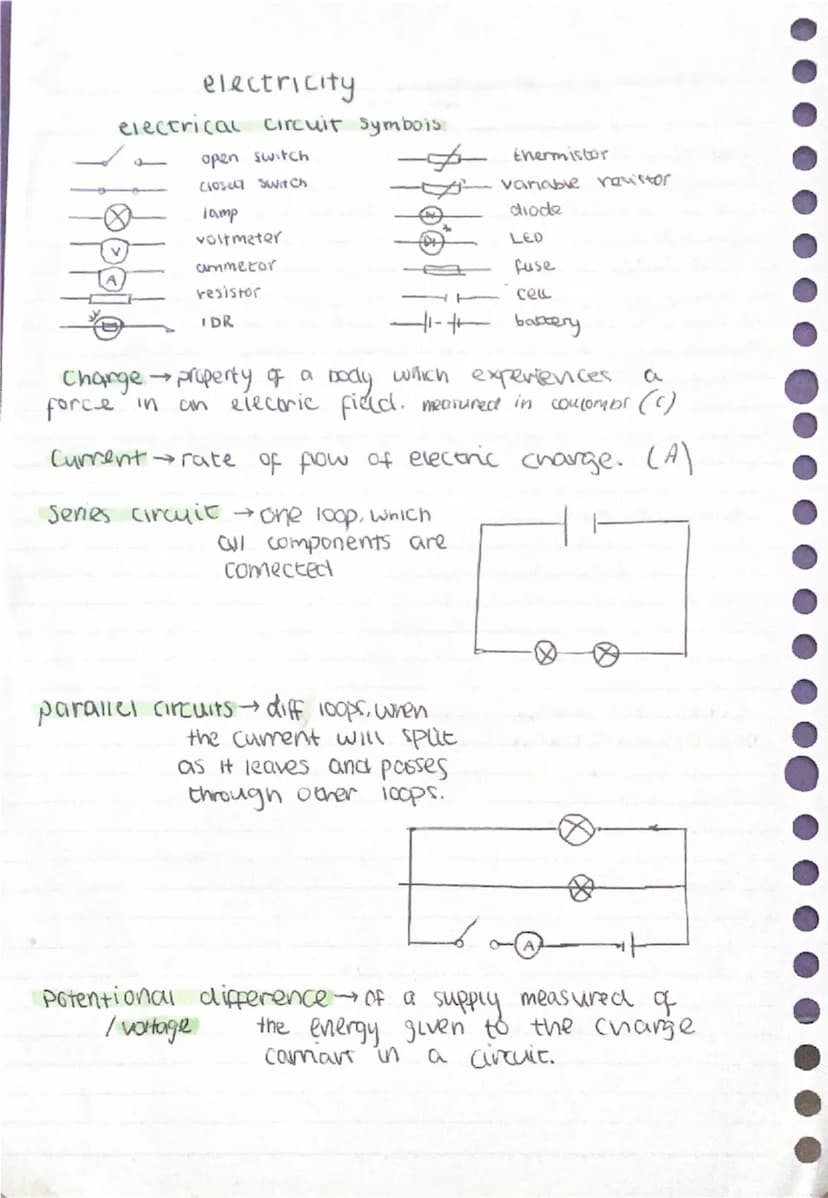 electricity
electrical circuit symbols
open switch
closed switch
lamp
V voltmeter
A ammeter
resistor
LDR
thermistor
variable resistor
diode
LED
fuse
cell
battery
Charge → property of a body which experiences a
force in an electric field. measured in coulombs (C)
Current → rate of flow of electric charge. (A)
Series circuit → one loop, which
all components are
connected
parallel circuits → diff loops, when
the current will split
as it leaves and passes
through other loops.
A
Potentional difference → of a supply measured of
/ voltage the energy given to the charge
in a circuit.